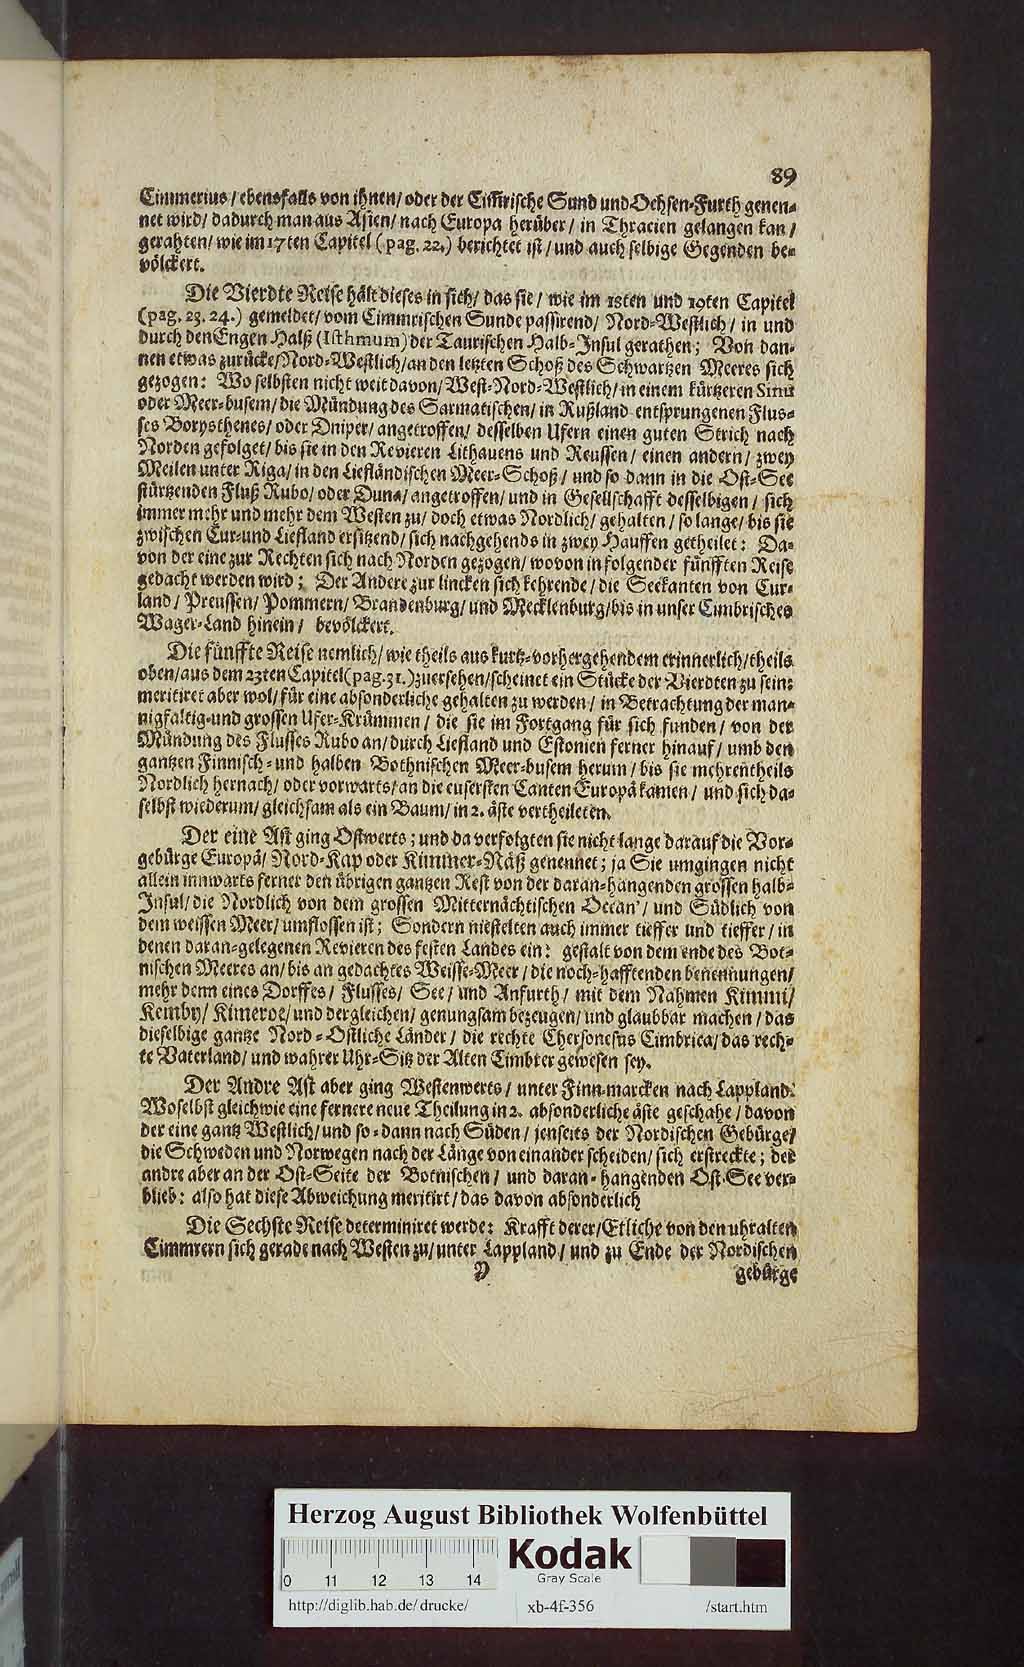 89
Cimmerius / ebenfalls von ihnen / oder der Cim̃rische Sund und Ochsen-Furth genen-
net wird / dadurch man aus Asien / nach Europa herüber / in Thracien gelangen kan /
gerahten / wie im 17ten Capitel (pag. 22.) berichtet ist / und auch selbige Gegenden be-
völckert.
Die Vierdte Reise hält dieses in sich / das sie / wie im 18ten und 19ten Capitel
(pag. 23. 24.) gemeldet / vom Cimmrischen Sunde passirend / Nord-Westlich / in und
durch den Engen Halß (Isthmum) der Taurischen Halb-Insul gerathen; Von dan-
nen etwas zurücke / Nord-Westlich / an den letzten Schoß des Schwartzen Meeres sich
gezogen: Wo selbsten nicht weit davon / West-Nord-Westlich / in einem kürtzeren Sinu
oder Meer-busem / die Mündung des Sarmatischen / in Rußland entsprungenen Flus-
ses Borysthenes / oder Dniper / angetroffen / desselben Ufern einen guten Strich nach
Norden gefolget / bis sie in den Revieren Lithauens und Reussen / einen andern / zwey
Meilen unter Riga / in den Liefländischen Meer-Schoß / und so dann in die Ost-See
stürtzenden Fluß Rubo / oder Duna / angetroffen / und in Gesellschafft desselbigen / sich
immer mehr und mehr dem Westen zu / doch etwas Nordlich / gehalten / so lange / bis sie
zwischen Cur-und Liefland ersitzend / sich nachgehends in zwey Hauffen getheilet: Da-
von der eine zur Rechten sich nach Norden gezogen / wovon in folgender fünfften Reise
gedacht werden wird; Der Andere zur lincken sich kehrende / die Seekanten von Cur-
land / Preussen / Pommern / Brandenburg / und Mecklenburg / bis in unser Cimbrisches
Wager-Land hinein / bevölckert.
Die fünffte Reise nemlich / wie theils aus kurtz-vorhergehendem erinnerlich / theils
oben / aus dem 23ten Capitel (pag. 31.) zuersehen / scheinet ein Stücke der Vierdten zu sein:
meritiret aber wol / für eine absonderliche gehalten zu werden / in Betrachtung der man-
nigfaltig-und grossen Ufer-Krümmen / die sie im Fortgang für sich funden / von der
Mündung des Flusses Rubo an / durch Liefland und Estonien ferner hinauf / umb den
gantzen Finnisch-und halben Bothnischen Meer-busem herum / bis sie mehrentheils
Nordlich hernach / oder vorwarts / an die eusersten Canten Europä kamen / und sich da-
selbst wiederum / gleichsam als ein Baum / in 2. äste vertheileten.
Der eine Ast ging Ostwerts; und da verfolgten sie nicht lange darauf die Vor-
gebürge Europä / Nord-Kap oder Kimmer-Näß genennet; ja Sie umgingen nicht
allein innwarts ferner den übrigen gantzen Rest von der daran-hangenden grossen halb-
Insul / die Nordlich von dem grossen Mitternächtischen Ocean / und Südlich von
dem weissen Meer / umflossen ist; Sondern niestelten auch immer tieffer und tieffer / in
denen daran-gelegenen Revieren des festen Landes ein: gestalt von dem ende des Bot-
nischen Meeres an / bis an gedachtes Weisse-Meer / die noch-hafftenden benennungen /
mehr denn eines Dorffes / Flusses / See / und Anfurth / mit dem Nahmen Kimmi /
Kemby / Kimeroe / und dergleichen / genungsam bezeugen / und glaubbar machen / das
dieselbige gantze Nord-Ostliche Länder / die rechte Chersonesus Cimbrica / das rech-
te Vaterland / und wahrer Uhr-Sitz der Alten Cimbrer gewesen sey.
Der Andre Ast aber ging Westenwerts / unter Finn-marcken nach Lappland:
Woselbst gleichwie eine fernere neue Theilung in 2. absonderliche äste geschahe / davon
der eine gantz Westlich / und so-dann nach Süden / jenseits der Nordischen Gebürge /
die Schweden und Norwegen nach der Länge von einander scheiden / sich erstreckte; der
andre aber an der Ost-Seite der Botnischen / und daran-hangenden Ost-See ver-
blieb: also hat diese Abweichung meritirt / das davon absonderlich
Die Sechste Reise determiniret werde: Krafft derer / Etliche von den uhralten
Cimmrern sich gerade nach Westen zu / unter Lappland / und zu Ende der Nordischen
gebürge
Herzog August Bibliothek Wolfenbüttel
Kodak
Gray Scale
0 11 12 13 14
http://diglib.hab.de/drucke/ xb-4f-356 /start.htm